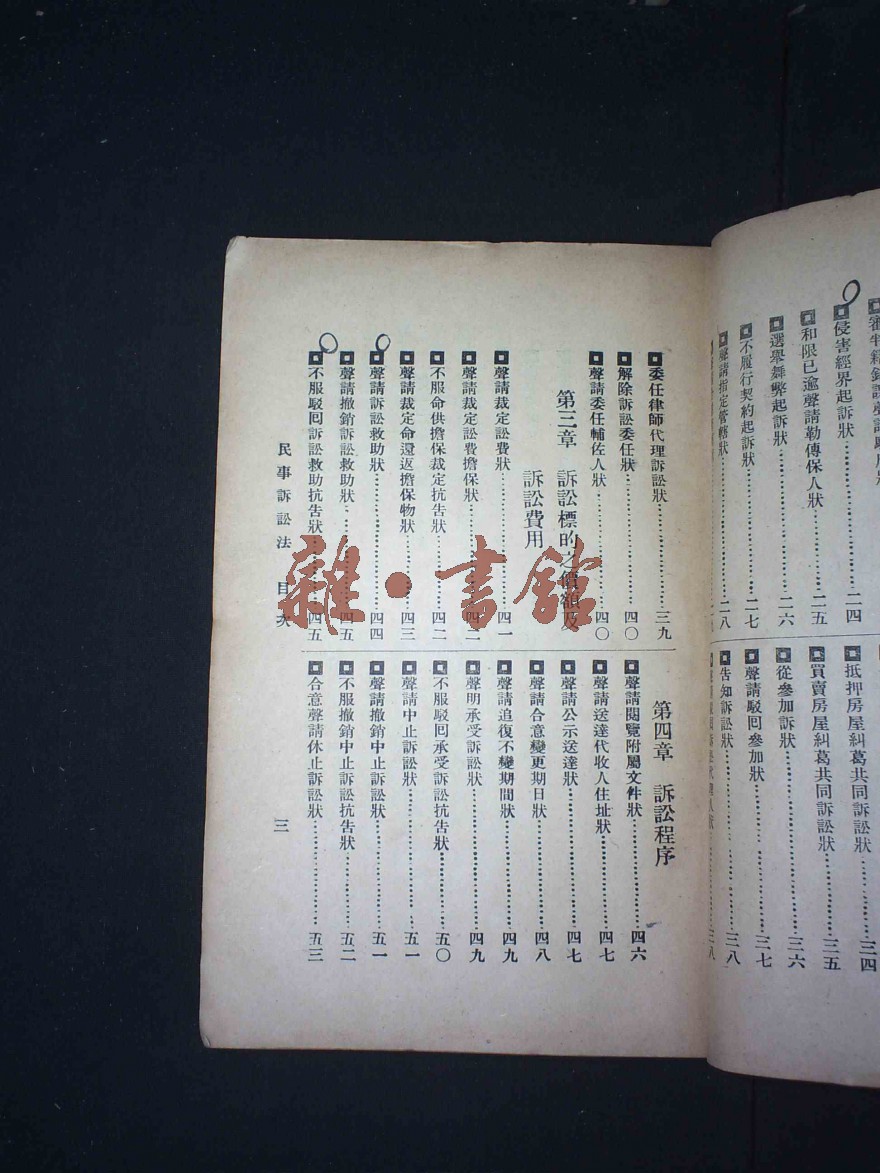 侵害經界起訴狀……二四
和限已逾聲請勒傳保人狀……二五
選舉舞弊起訴狀……二六
不履行契約起訴狀……二七
聲請指定管轄狀……二八
抵押房屋糾葛共同訴訟狀……三四
買賣房屋糾葛共同訴訟狀……三五
從參加訴狀……三六
聲請駁回參加狀……三七
告知訴訟狀……三八
委任律師代理訴訟狀……三九
解除訴訟委任狀……四〇
聲請委任輔佐人狀……四〇
第三章 訴訟標的之價額及
訴訟費用
聲請裁定訟費狀……四一
聲請裁定訟費擔保狀……四二
不服命供擔保裁定抗告狀……四二
聲請裁定命還返擔保物狀……四三
聲請訴訟救助狀……四四
聲請撤銷訴訟救助狀……四五
不服駁回訴訟救助抗告狀……四五
第四章 訴訟程序
聲請閱覽附屬文件狀……四六
聲請送達代收人住址狀……四七
聲請公示送達狀……四七
聲請合意變更期日狀……四八
聲請追復不變期間狀……四九
聲明承受訴訟狀……四九
不服駁回承受訴訟抗告狀……五〇
聲請中止訴訟狀……五一
聲請撤銷中止訴訟狀……五一
不服撤銷中止訴訟抗告狀……五二
合意聲請休止訴訟狀……五三
民事訴訟法 目次 三
雜·書館